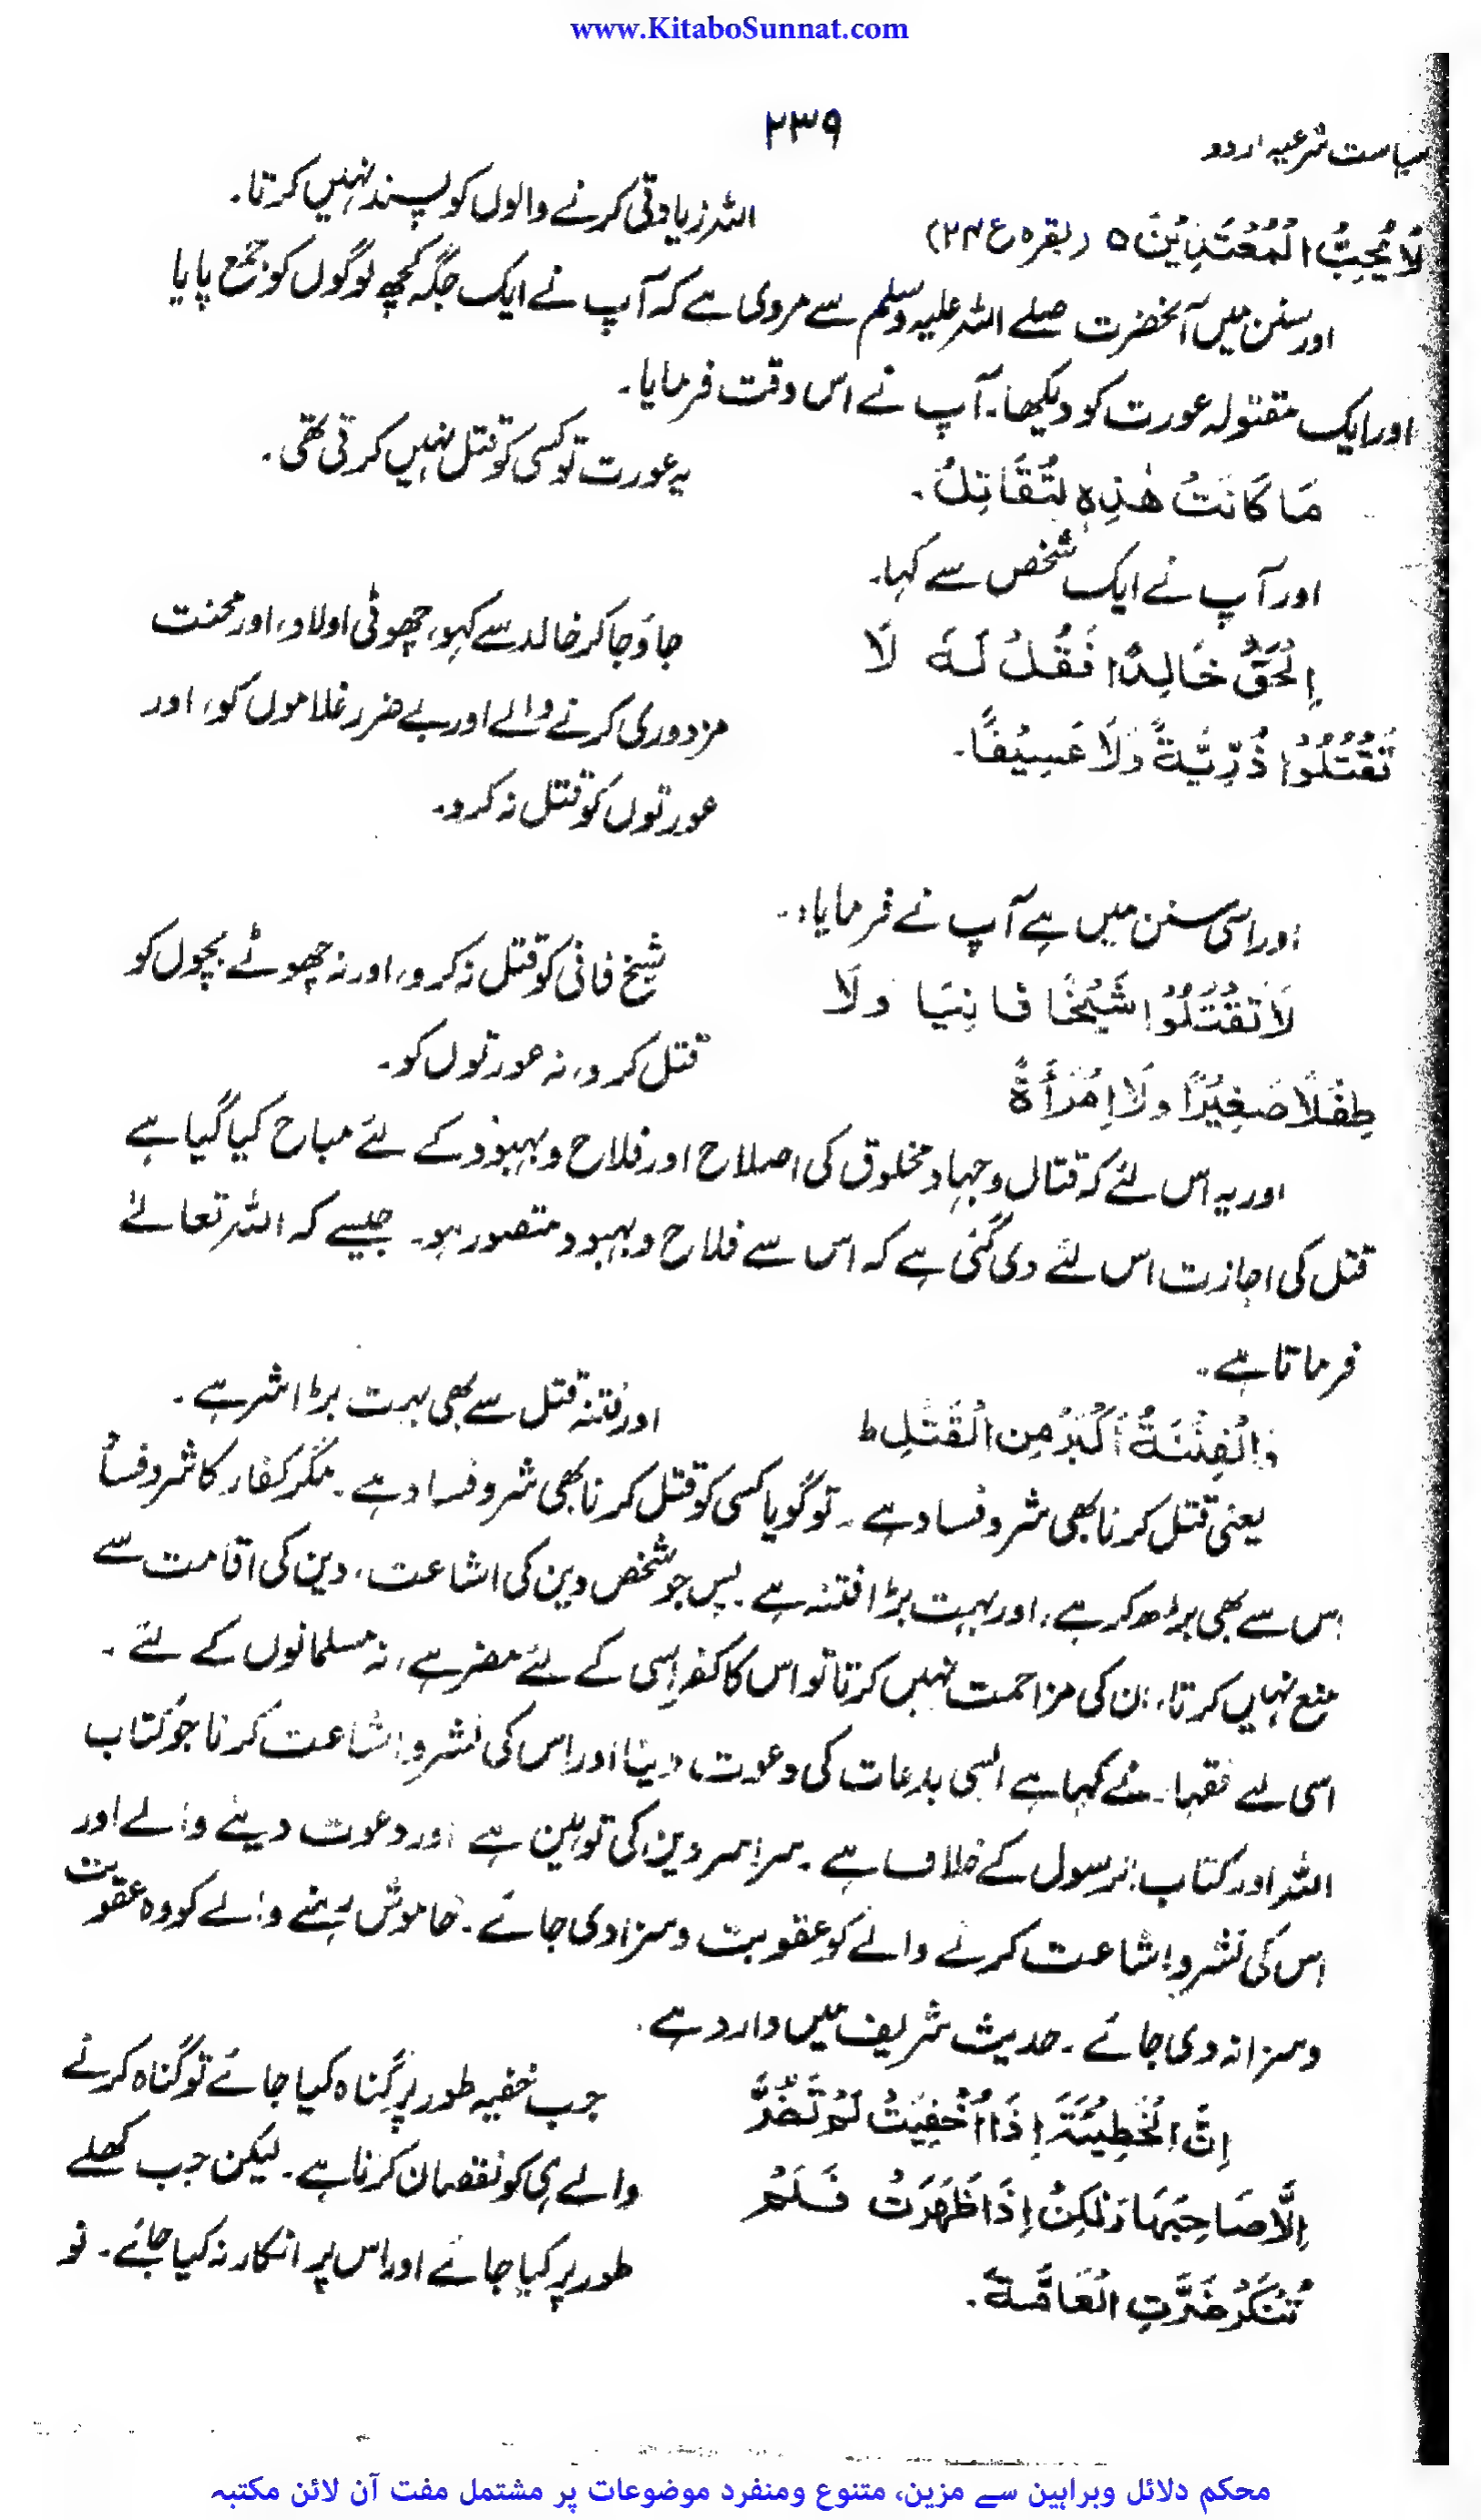 www.KitaboSunnat.com
سیاست شرعیہ اردو
۲۳۹
لَا يُحِبُّ الْمُعْتَدِيْنَ ٥ (بقرہ ع ۲۴)
اللہ زیادتی کرنے والوں کو پسند نہیں کرتا۔
اور سنن میں آنحضرت صلے اللہ علیہ وسلم سے مروی ہے کہ آپ نے ایک جگہ کچھ لوگوں کو جمع پایا
اور ایک مقتولہ عورت کو دیکھا۔ آپ نے اس وقت فرمایا۔
مَا كَانَتْ هٰذِهٖ لِتُقَاتِلُ۔
یہ عورت تو کسی کو قتل نہیں کرتی تھی۔
اور آپ نے ایک شخص سے کہا۔
اِلْحَقْ خَالِدًا فَقُلْ لَهٗ لَا
تَقْتُلُوْا ذُرِّيَّةً وَلَا عَسِيْفًا۔
جاؤ جا کر خالد سے کہو، چھوٹی اولاد، اور محنت
مزدوری کرنے والے اور بے ضرر غلاموں کو، اور
عورتوں کو قتل نہ کرو۔
اور اسی سنن میں ہے آپ نے فرمایا:۔
لَا تَقْتُلُوْا شَيْخًا فَانِيًا وَلَا
طِفْلًا صَغِيْرًا وَلَا اِمْرَأَةً
شیخ فانی کو قتل نہ کرو، اور نہ چھوٹے بچوں کو
قتل کرو، نہ عورتوں کو۔
اور یہ اس لئے کہ قتال وجہاد مخلوق کی اصلاح اور فلاح و بہبود کے لئے مباح کیا گیا ہے
قتل کی اجازت اس لئے دی گئی ہے کہ اس سے فلاح و بہبود متصور ہو۔ جیسے کہ اللہ تعالےٰ
فرماتا ہے۔
وَالْفِتْنَةُ اَكْبَرُ مِنَ الْقَتْلِ ط
اور فتنہ قتل سے بھی بہت بڑا شر ہے۔
یعنی قتل کرنا بھی شر و فساد ہے۔ تو گویا کسی کو قتل کرنا بھی شر و فساد ہے۔ مگر کفار کا شر و فساد
اس سے بھی بڑھ کر ہے، اور بہت بڑا فتنہ ہے۔ پس جو شخص دین کی اشاعت، دین کی اقامت سے
منع نہیں کرتا، ان کی مزاحمت نہیں کرتا تو اس کا کفر اسی کے لئے مضر ہے، نہ مسلمانوں کے لئے۔
اسی لے فقہاء نے کہا ہے ایسی بدعات کی دعوت دینا اور اس کی نشر و اشاعت کرنا جو کتاب
اللہ اور کتاب الرسول کے خلاف ہے۔ سراسر دین کی توہین ہے اور دعوت دینے والے اور
اس کی نشر و اشاعت کرنے والے کو عقوبت و سزا دی جائے۔ خاموش رہنے والے کو وہ عقوبت
و سزا نہ دی جائے۔ حدیث شریف میں وارد ہے۔
اِنَّ الْخَطِيْئَةَ اِذَا اُخْفِيَتْ لَمْ تَضُرَّ
اِلَّا صَاحِبَهَا وَلٰكِنْ اِذَا ظَهَرَتْ فَلَمْ
تُنْكَرْ ضَرَّتِ الْعَامَّةَ۔
جب خفیہ طور پر گناہ کیا جائے تو گناہ کرنے
والے ہی کو نقصان کرتا ہے۔ لیکن جب کھلے
طور پر کیا جائے اور اس پر انکار نہ کیا جائے۔ تو
محکم دلائل وبراہین سے مزین، متنوع ومنفرد موضوعات پر مشتمل مفت آن لائن مکتبہ